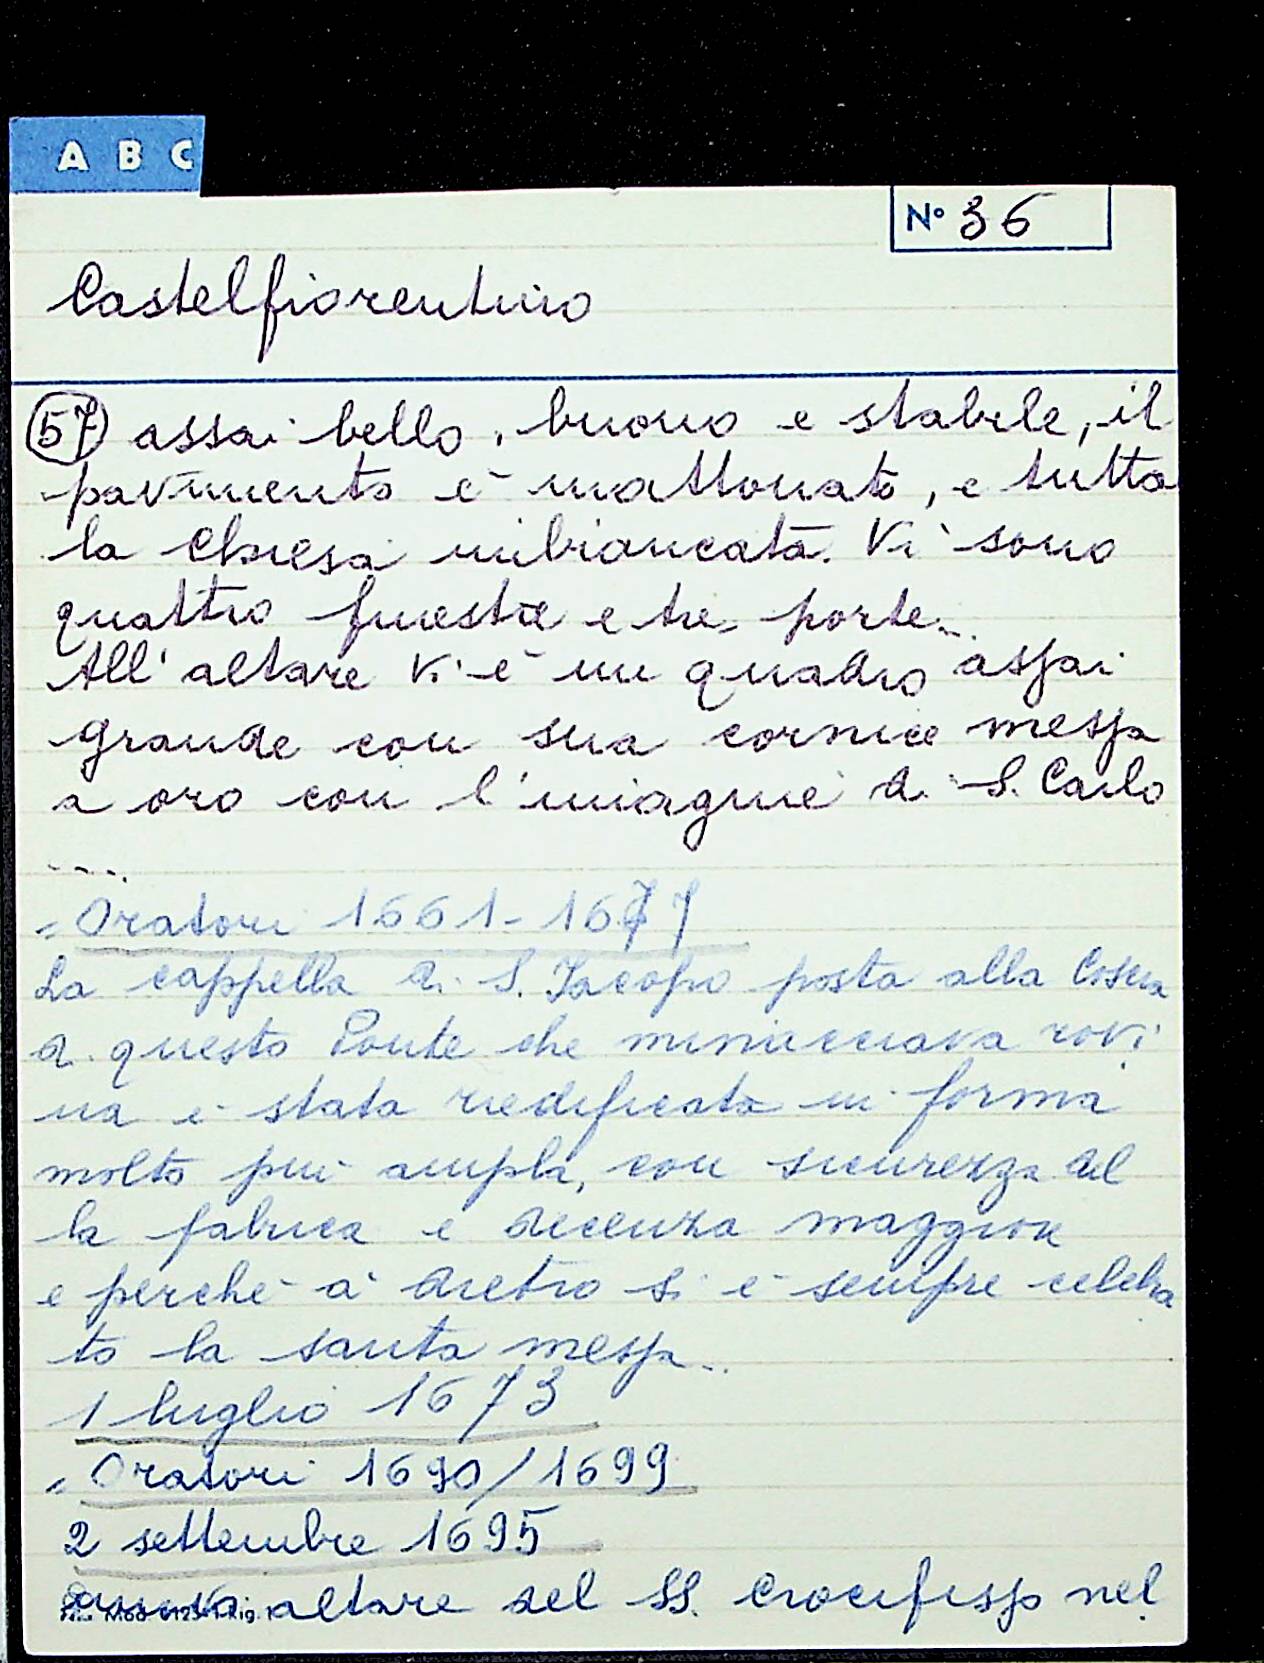 A B C
N° 36
Castelfiorentino
57 assai bello, buono e stabile, il
pavimento è mattonato, e tutta
la chiesa imbiancata. Vi sono
quattro finestre e tre porte..
All'altare vi è un quadro assai
grande con sua cornice messa
a oro con l'imagine di S. Carlo
....
= Oratori 1661-1677
La cappella di S. Jacopo posta alla Coscia
di questo Ponte che minacciava rovi
na è stata riedificata in forma
molto più ampla, con sicurezza del
la fabrica e decenza maggiore
e perché à dietro si è sempre celebra
to la santa messa..
1 luglio 1673
= Oratori 1690/1699
2 settembre 1695
altare del SS. Crocifisso nel